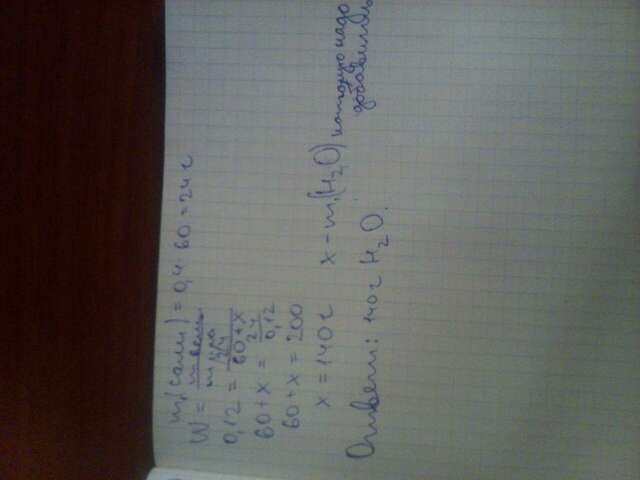 m(соли) = 0,4 · 60 = 24 г
W = m вещ. / m р-ра
0,12 = 24 / 60+x
60+x = 24 / 0,12
60+x = 200
x = 140 г   x - m(H₂O) которую надо добавить
Ответ: 140 г H₂O.